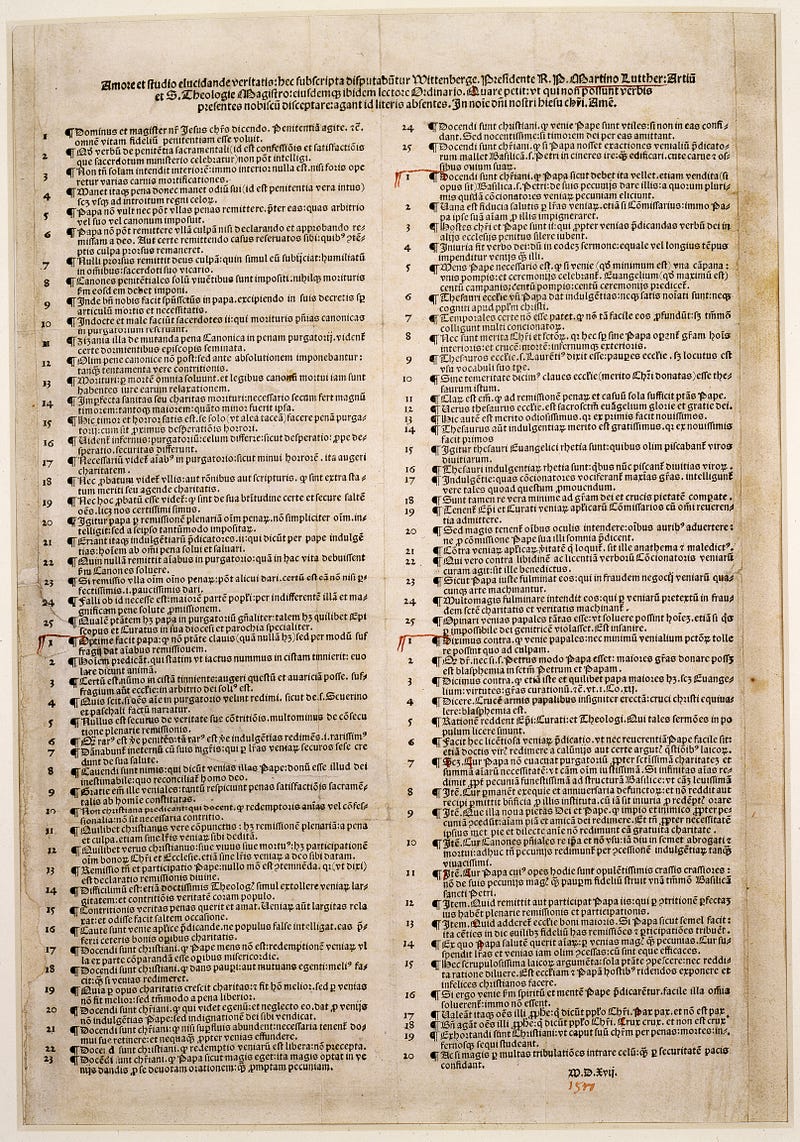 Amore et studio elucidande veritatis: hec subscripta disputabūtur Wittenberge. Presidente R. P. Martino Lutther: Artiū
et S. Theologie Magistro: eiusdemqȝ ibidem lectore Ordinario. Quare petit: vt qui non possunt verbis
presentes nobiscū disceptare: agant id literis absentes. In noīe dn̄i nostri hiesu chr̄i. Amē.
1 ¶ Dominus et magister nr̄ Jesus chr̄s dicendo. Penitentiā agite. ⁊c̄.
omnē vitam fideliū penitentiam esse voluit.
2 ¶ Qd̄ verbū de penitētia sacramentali (id est confessiōis et satisfactiōis
que sacerdotum ministerio celebratur) non pōt intelligi.
3 ¶ Non tn̄ solam intendit interiorē: immo interior nulla est. nisi foris ope
retur varias carnis mortificationes.
4 ¶ Manet itaqȝ pena donec manet odiū sui (id est penitentia vera intus)
scȝ vsqȝ ad introitum regni celorꝝ.
5 ¶ Papa nō vult nec pōt vllas penas remittere. p̄ter eas: quas arbitrio
vel suo vel canonum imposuit.
6 ¶ Papa nō pōt remittere vllā culpā nisi declarando et approbando re⸗
missam a deo. Aut certe remittendo casus reservatos sibi: quibꝰ cōtē⸗
ptis culpa prorsus remaneret.
7 ¶ Nulli prorsus remittit deus culpā: quin simul eū subijciat: humiliatū
in omībus: sacerdoti suo vicario.
8 ¶ Canones penitētiales solū viuētibus sunt impositi. nihilqȝ morituris
ꝑm eosdem debet imponi.
9 ¶ Inde bn̄ nobis facit spūssctūs in papa. excipiendo in suis decretis sp̄
articulū mortis et necessitatis.
10 ¶ Indocte et male faciūt sacerdotes ii: qui morituris pn̄ias canonicas
in purgatorium reseruant.
11 ¶ Zizania illa de mutanda pena Canonica in penam purgatorij. videntur
certe dormientibus episcopis seminata.
12 ¶ Olim pene canonice nō post: sed ante absolutionem imponebantur:
tanqȝ tentamenta vere contritionis.
13 ¶ Morituri: ꝑ mortē omnia soluunt. et legibus canonū mortui iam sunt
habentes iure earum relaxationem.
14 ¶ Imperfecta sanitas seu charitas morituri: necessario secum fert magnū
timorem: tantoqȝ maiorem: quāto minor fuerit ipsa.
15 ¶ Hic timor et horror. satis est. se solo (vt alia taceā) facere penā purga⸗
torij: cum sit proximus desperatiōis horrori.
16 ¶ Uidentur infernus: purgatoriū: celum differre: sicut desperatio: ꝓpe de⸗
speratio. securitas differunt.
17 ¶ Necessariū videtur aīabus in purgatorio: sicut minui horrorē. ita augeri
charitatem.
18 ¶ Nec ꝓbatum videtur vllis: aut rōnibus aut scripturis. qȝ sint extra sta⸗
tum meriti seu agende charitatis.
19 ¶ Nec hoc ꝓbatū esse videtur: qȝ sint de sua btītudine certe et secure saltē
oēs. licȝ nos certissimi simus.
20 ¶ Igitur papa ꝑ remissionē plenariā oīm penarꝝ. nō simpliciter oīm. in⸗
telligit: sed a seipso tantūmodo impositarꝝ.
21 ¶ Errant itaqȝ indulgētiarū p̄dicatores. ii: qui dicūt per pape indulgē
tias: hoīem ab omī pena solui et saluari.
22 ¶ Quin nullā remittit aīabus in purgatorio: quā in hac vita debuissent
ꝑm Canones soluere.
23 ¶ Si remissio vlla oīm oīno penarꝝ: pōt alicui dari. certū est eā nō nisi ꝑ⸗
fectissimis. i. paucissimis dari.
24 ¶ Falli ob id necesse est: maiorē partē popli: per indifferentē illā et ma⸗
gnificam pene solute ꝓmissionem.
25 ¶ Qualē ptātem hȝ papa in purgatoriū gn̄aliter: talem hȝ quilibet Epi
scopus et Curatus in sua diocesi et parochia specialiter.
1 ¶ Optime facit papa: qȝ nō ptāte clauis (quā nullā hȝ) sed per modū suf
fragij dat aīabus remissionem.
2 ¶ Hoīem predicāt. qui statim vt iactus nummus in cistam tinnierit: euo
lare dicunt animā.
3 ¶ Certū est. nūmo in cistā tinniente: augeri questū et auariciā posse. suf⸗
fragium aūt ecclīe: in arbitrio dei solius est.
4 ¶ Quis scit. si oēs aīe in purgatorio velint redimi. sicut de. s. Seuerino
et paschali factū narratur.
5 ¶ Nullus est securus de veritate sue cōtritiōis. multominus de cōsecu
tione plenarie remissionis.
6 ¶ Qȝ rarꝰ est ve̅ penitēs: tā rarꝰ est ve̅ indulgētias redimēs. i. rarissimꝰ
7 ¶ Dānabunt̄ in eternū cū suis mgr̄is: qui ꝑ lr̄as veniarꝝ securos sese cre
dunt de sua salute.
8 ¶ Cauendi sunt nimis: qui dicūt venias illas Pape: donū esse illud dei
inestimabile: quo reconciliat̄ homo deo.
9 ¶ Gratie em̄ ille veniales: tantū respiciunt penas satisfactiōis sacramē⸗
talis ab homine constitutas.
10 ¶ Non christiana predicant: qui docent. qȝ redempturis animas vel cōfes⸗
sionalia: nō sit necessaria contritio.
11 ¶ Quilibet christianus vere cōpunctus: hȝ remissionē plenariā: a pena
et culpa. etiam sine lr̄is veniarꝝ sibi debitā.
12 ¶ Quilibet verus christianus: siue viuus siue mortuꝰ: hȝ participationē
oīm bonorꝝ Chr̄i et Ecclesie. etiā sine lr̄is veniarꝝ a deo sibi datam.
13 ¶ Remissio tn̄ et participatio Pape: nullo mō est ꝯtemnēda. qr (vt dixi)
est declaratio remissionis diuine.
14 ¶ Difficilimū est: etiā doctissimis Theologꝭ simul extollere veniarꝝ lar⸗
gitatem: et contritiōis veritatē coram populo.
15 ¶ Contritionis veritas penas querit et amat. Ueniarꝝ aūt largitas rela
xat: et odisse facit saltem occasione.
16 ¶ Caute sunt venie aplīce p̄dicande. ne populus false intelligat. eas p̄⸗
ferri ceteris bonis opibus charitatis.
17 ¶ Docendi sunt christiani. qȝ Pape mens nō est: redemptionē veniarꝝ vl
la ex parte cōparandā esse opībus misericordie.
18 ¶ Docendi sunt christiani. qȝ dans pauꝑi: aut mutuans egenti: meliꝰ fa⸗
cit: qȝ si venias redimeret.
19 ¶ Quia ꝑ opus charitatis crescit charitas: et fit hō melior: sed ꝑ venias
nō fit melior: sed tm̄modo a pena liberior.
20 ¶ Docendi sunt chr̄iani. qȝ qui videt egenū: et neglecto eo. dat ꝓ venijs
nō indulgētias Pape: sed indignationē dei sibi vendicat.
21 ¶ Docendi sunt chr̄iani: qȝ nisi suꝑfluis abundent: necessaria tenent̄ do⸗
mui sue retinere: et nequaqȝ ꝓpter venias effundere.
22 ¶ Docendi sunt christiani. qȝ redemptio veniarū est libera: nō p̄cepta.
23 ¶ Docēdi sunt chr̄iani. qȝ Papa sicut magis eget: ita magis optat in ve
nijs dandis ꝓ se deuotam orationem: qȝ ꝓmptam pecuniam.
24 ¶ Docendi sunt christiani. qȝ venie Pape sunt vtiles: si non in eas confi⸗
dant. Sed nocentissime: si timorem dei per eas amittant.
25 ¶ Docendi sunt chr̄iani. qȝ si Papa nosset exactiones venialiū p̄dicato⸗
rum mallet Basilicā. s. Petri in cineres ire: qȝ edificari. cute carne ⁊ os⸗
sibus ouium suarꝝ.
1 ¶ Docendi sunt chr̄iani. qȝ Papa sicut debet ita vellet. etiam vendita (si
opus sit) Basilicā. s. Petri: de suis pecunijs dare illis: a quorum pluri⸗
mis quidā cōcionatores veniarꝝ pecuniam eliciunt.
2 ¶ Uana est fiducia salutis ꝑ lr̄as veniarꝝ. etiā si Comissarius: immo Pa⸗
pa ipse suā aīam ꝓ illis impigneraret.
3 ¶ Hostes chr̄i et Pape sunt ii: qui ꝓpter venias p̄dicandas verbū dei in
alijs ecclesijs penitus silere iubent.
4 ¶ Iniuria fit verbo dei: dū in eodez sermone: equale vel longius tēpus
impenditur venijs qȝ illi.
5 ¶ Mens Pape necessario est. qȝ si venie (qȝ minimum est) vna cāpana:
vnis pompis: et ceremonijs celebrant̄. Euangelium (qȝ maximū est)
centū campanis: centū pompis: centū ceremonijs predicet̄.
6 ¶ Thesauri ecclīe vn̄ Papa dat indulgētias: neqȝ satis noīati sunt: neqȝ
cogniti apud ppl̄m chr̄i.
7 ¶ Temporales certe nō esse patet. qȝ nō tā facile eos ꝓfundūt: sȝ tm̄mō
colligunt multi concionatorꝝ.
8 ¶ Nec sunt merita Chr̄i et sctōrꝝ. qȝ hec sp̄ sine Papa operant̄ gr̄am hoīs
interioris: et crucē: mortē: infernumqȝ exterioris.
9 ¶ Thesauros ecclīe. s. Laurētiꝰ dixit esse: pauꝑes ecclīe. sȝ locutus est
vsu vocabuli suo tꝑe.
10 ¶ Sine temeritate dicimꝰ claues ecclīe (merito Chr̄i donatas) esse the⸗
saurum istum.
11 ¶ Clarꝝ est em̄. qȝ ad remissionē penarꝝ et casuū sola sufficit ptās Pape.
12 ¶ Uerus thesaurus ecclīe. est sacrosctm̄ euāgelium glorie et gratie dei.
13 ¶ Hic autē est merito odiosissimus. qȝ ex primis facit nouissimos.
14 ¶ Thesaurus aūt indulgentiarꝝ merito est gratissimus. qȝ ex nouissimis
facit primos
15 ¶ Igitur thesauri Euangelici rhetia sunt: quibus olim piscabant̄ viros
diuitiarum.
16 ¶ Thesauri indulgentiarꝝ rhetia sunt: qȝbus nūc piscant̄ diuitias virorꝝ.
17 ¶ Indulgētie: quas cōcionatores vociferant̄ maxīas gr̄as. intelligunt̄
vere tales quoad questum ꝓmouendum.
18 ¶ Sunt tamen re vera minime ad gr̄am dei et crucis pietatē compate.
19 ¶ Tenent̄ Epi et Curati veniarꝝ aplīcarꝝ Comissarios cū omī reueren⸗
tia admittere.
20 ¶ Sed magis tenent̄ oībus oculis intendere: oībus auribꝰ aduertere:
ne ꝓ comissione Pape sua illi somnia p̄dicent.
21 ¶ Cōtra veniarꝝ aplīcarꝝ v̄itatē qȝ loquit̄. sit ille anathema ⁊ maledictꝰ.
22 ¶ Qui vero contra libidinē ac licentiā verborū Cōcionatoris veniarū
curam agit: sit ille benedictus.
23 ¶ Sicut Papa iuste fulminat eos: qui in fraudem negocij veniarū qua⸗
cunqȝ arte machinantur.
24 ¶ Multomagis fulminare intendit eos: qui ꝑ veniarū pretextū in frau⸗
dem sctē charitatis et veritatis machinant̄.
25 ¶ Opinari venias papales tātas esse: vt soluere possint hoīez. etiā si qȝ
ꝑ impossibile dei genitricē violasset. Est insanire.
1 ¶ Diximus contra. qȝ venie papales: nec minimū venialium pctōrꝝ tolle
re possint quo ad culpam.
2 ¶ Qȝ dr̄. nec si. s. Petrus modo Papa esset: maiores gr̄as donare possȝ
est blasphemia in sctm̄ Petrum et Papam.
3 ¶ Dicimus contra. qȝ etiā iste et quilibet papa maiores hȝ. scȝ Euange⸗
lium: virtutes: gr̄as curationū. ⁊c̄. vt. i. Co. xij.
4 ¶ Dicere. Crucē armis papalibus insigniter erectā: cruci christi equiua⸗
lere: blasphemia est.
5 ¶ Rationē reddent Epi: Curati: et Theologi. Qui tales sermōes in po
pulum licere sinunt.
6 ¶ Facit hec licētiosa veniarꝝ p̄dicatio. vt nec reuerentiā Pape facile sit:
etiā doctis viris redimere a calūnijs aut certe argutꝭ qȝstiōibꝰ laicorꝝ.
7 ¶ Scȝ. Cur Papa nō euacuat purgatoriū ꝓpter sctissimā charitatē et
summā aīarū necessitatē: vt cām oīm iustissimā. Si infinitas aīas re⸗
dimit ꝓpter pecuniā funestissimā ad structurā Basilice: vt cām leuissimā
8 ¶ Itē. Cur ꝑmanent exequie et anniuersaria defunctorꝝ: et nō reddit aut
recipi ꝑmittit bn̄ficia ꝓ illis instituta. cū iā sit iniuria ꝓ redēptis orare
9 ¶ Itē. Que illa noua pietas Dei et Pape. qȝ impio et inimico ꝓpter pe⸗
cuniā ꝯcedūt: aīam piā et amicā dei redimere. Et tn̄ ꝓpter necessitatē
ipsius met pie et dilecte aīe nō redimunt eā gratuita charitate.
10 ¶ Itē. Cur Canones pn̄iales re ipsa et nō vsu: iā diu in semet abrogati ⁊
mortui: adhuc tn̄ pecunijs redimunt̄ ꝑ ꝯcessionē indulgētiarꝝ tanqȝ
viuacissimi.
11 ¶ Itē. Cur Papa cuiꝰ opes hodie sunt opulētissimis crassis crassiores:
nō de suis pecunijs magꝭ qȝ pauꝑum fideliū struit vnā tm̄mō Basilicā
sancti Petri.
12 ¶ Item. Quid remittit aut participat Papa iis: qui ꝑ ꝯtritionē ꝑfectā
ius habēt plenarie remissionis et participationis.
13 ¶ Item. Quid adderet̄ ecclīe boni maioris. Si Papa sicut semel facit:
ita cēties in die cuilibȝ fideliū has remissiōes ⁊ ꝑticipatiōes tribuet̄.
14 ¶ Ex quo Papa salutē querit aīarꝝ: ꝑ venias magꝭ qȝ pecunias. Cur su⸗
spendit lr̄as et venias iam olim ꝯcessas: cū sint eque efficaces.
15 ¶ Hec scrupulosissima laicorꝝ argumēta: sola ptāte ꝯpescere: nec reddi⸗
ta ratione diluere. Est ecclīam et Papā hostibꝰ ridendos exponere et
infelices christianos facere.
16 ¶ Si ergo venie ꝑm spiritū et mentē Pape p̄dicarēt̄ur. facile illa omīa
soluerent̄: immo nō essent.
17 ¶ Ualeāt itaqȝ oēs illi ꝓphe̅: qȝ dicūt pplo Chr̄i. Pax pax. et nō est pax.
18 ¶ Bn̄ agāt oēs illi ꝓphe̅: qȝ dicūt pplo Chr̄i. Crux crux. et non est crux
19 ¶ Exhortandi sunt Christiani: vt caput suū chr̄m per penas: mortes: in⸗
fernosqȝ sequi studeant.
20 ¶ Ac si magis ꝑ multas tribulatiōes intrare celū: qȝ ꝑ securitatē pacis
confidant.
M. D. Xvij.
1517